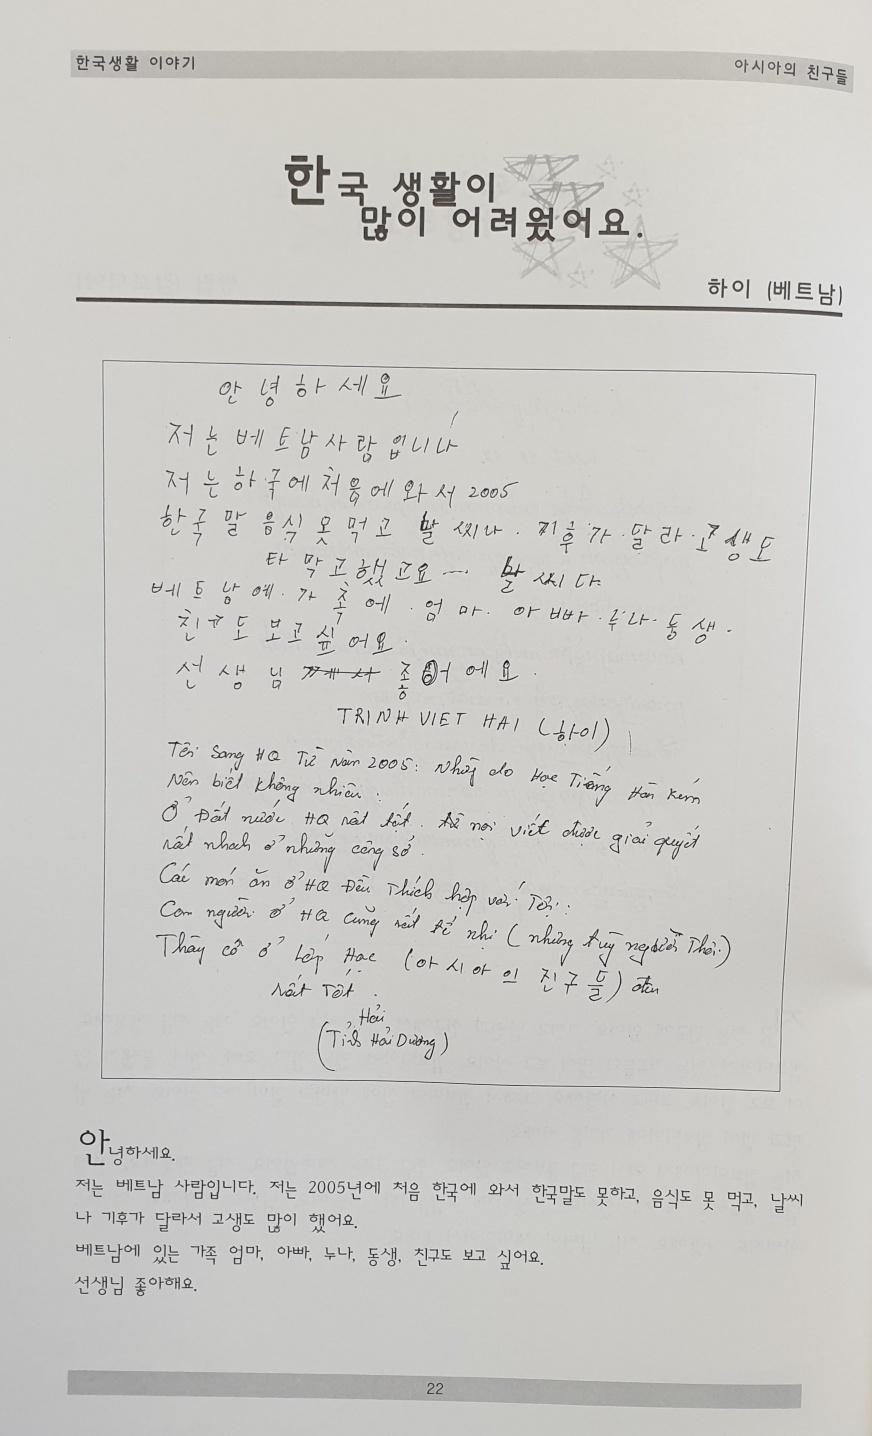 한국생활 이야기
아시아의 친구들
한국 생활이
많이 어려웠어요.
하이 (베트남)
안녕하세요
저는 베트남사람입니다
저는 한국에 처음에 와서 2005
한국 말 음식 못 먹고 날 씨나. 기후가. 달라. 고생도
타 막고했고요 .... 날씨다.
베트남에. 가족에. 엄마. 아빠. 루나. 동생.
친구도 보고 싶어요.
선생님 좋아에요.
TRINH VIET HAI (하이)
Tôi Sang HQ Từ Năm 2005: Nhưng do Học Tiếng Hàn kém
Nên biết không nhiều:
Ở Đất nước HQ rất tốt. mọi việt được giải quyết
rất nhanh ở những công sở.
Các món ăn ở HQ Đều Thích hợp với Tôi:
Con người ở HQ cũng rất tế nhị (nhưng tuỳ người Thôi.)
Thầy cô ở Lớp Học (아시아의 친구들) đều
rất Tốt.
Hải
(Tỉnh Hải Dương)
안녕하세요.
저는 베트남 사람입니다. 저는 2005년에 처음 한국에 와서 한국말도 못하고, 음식도 못 먹고, 날씨
나 기후가 달라서 고생도 많이 했어요.
베트남에 있는 가족 엄마, 아빠, 누나, 동생, 친구도 보고 싶어요.
선생님 좋아해요.
22